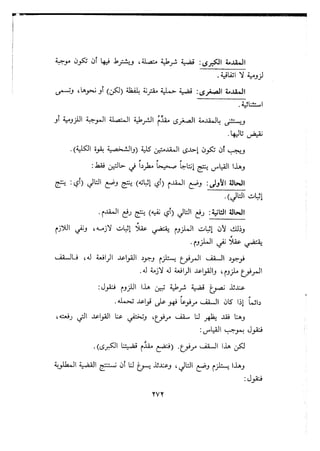 المقدمة الكبرى: قضية شرطية متصلة، ويشترط فيها أن تكون موجبة
لزومية لا اتفاقية.
المقدمة الصغرى: قضية حملية مقترنة بلفظة (لكن) أو نحوها، وتسمى
استثنائية.
ويستثنى بالمقدمة الصغرى مقدم الشرطية المتصلة الموجبة اللزومية أو
نقيض تاليها.
ويجب أن تكون إحدى المقدمتين كلية (والشخصية بقوة الكلية).
وهذا القياس ينتج إنتاجا صحيحا مطردا في حالتين فقط:
الحالة الأولى: وضع المقدم (أي إثباته) ينتج وضع التالي (أي:
إثبات التالي).
الحالة الثانية: رفع التالي (أي نفيه) ينتج رفع المقدم.
وذلك لأن إثبات الملزوم يقتضي عقلا إثبات لازمه، ونفي اللازم
يقتضي عقلا نفي الملزوم.
فوجود السقف المرفوع يستلزم وجود القواعد الرافعة له، فالسقف
المرفوع ملزوم، والقواعد الرافعة له لازمة له.
عندئذ نصوغ قضية شرطية تبين هذا اللزوم فنقول:
إذا كان السقف مرفوعا فهو على قواعد تحمله.
وهنا فقد يظهر لنا سقف مرفوع، وتختفي عنا القواعد التي ترفعه،
فنقول بموجب القياس:
لكن هذا السقف مرفوع. (فنضع مقدم قضيتنا الكبرى).
وهذا يستلزم وضع التالي، وعندئذ يصح لنا أن نستنتج القضية المطلوبة
فنقول:
٢٧٢